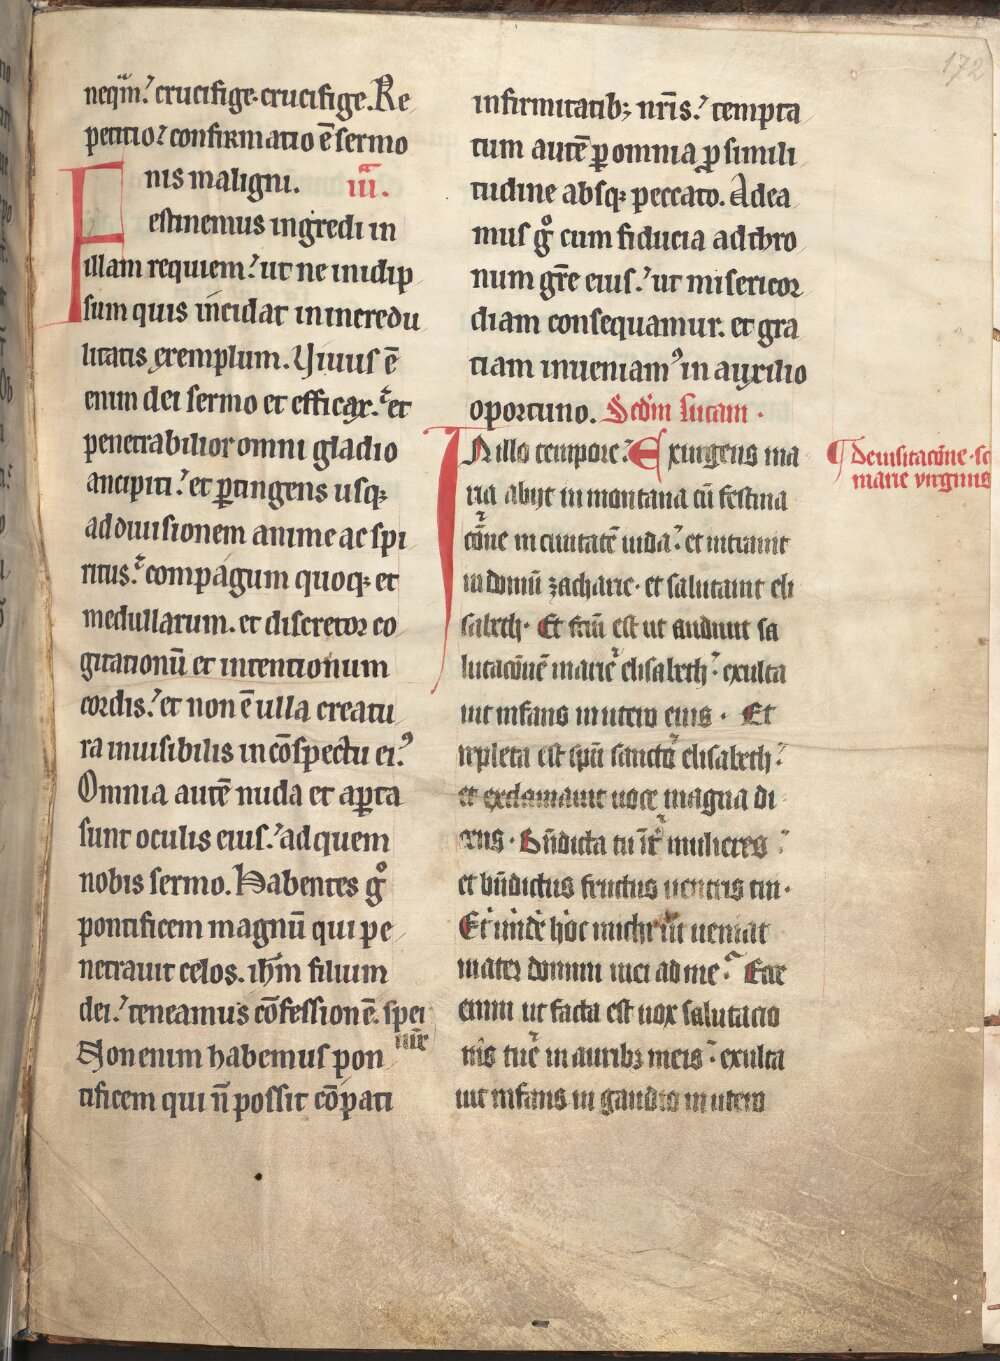 172
neq̃m. crucifige·crucifige. Re
petitio? confirmatio ē sermo
nis maligni. iiı̃.
Festinemus ingredi in
illam requiem? ut ne inidip
sum quis incidat in incredu
litatis exemplum. Viuus ē
enim dei sermo et efficax. et
penetrabilior omni gladio
ancipiti? et ꝑtingens usq;
ad diuisionem anime ac spi
ritus. compagum quoq; et
medullarum. et discretor co
gitationū et intentionum
cordis? et non ē ulla creatu
ra inuisibilis in cōspectu eiꝰ
Omnia autē nuda et aꝑta
sunt oculis eius? ad quem
nobis sermo. Habentes gͦ
pontificem magnū qui pe
netrauit celos. ihm̄ filium
dei? teneamus cōfessionē. spei
nr̄e
Non enim habemus pon
tificem qui n̄ possit cōpati
infirmitatib; nr̄is? tempta
tum autē ꝑ omnia ꝑ simili
tudine absq; peccato. Adea
mus gͦ cum fiducia ad thro
num gr̄e eius? ut misericor
diam consequamur. et gra
tiam inueniamꝰ in auxilio
oportuno. Scd̄m lucam ·
IN illo tempore? Exurgens ma
ria abijt in montana cū festina
cōne in ciuitatē iuda? et intrauit
in domū zacharie· et salutauit eli
sabeth· Et fc̄m est ut audiuit sa
lutacōnē marie elisabeth· exulta
uit infans in utero eius · Et
repleta est spū sancto elisabeth?
et exclamauit uoce magna di
cens · Bn̄dicta tu īt mulieres
et bn̄dictus fructus uentris tui·
Et unde hoc michi ut ueniat
mater domini mei ad me? Ecce
enim ut facta est uox salutacio
nis tue in aurib; meis? exulta
uit infans in gaudio in utero
De uisitacōne · sc̄
marie virginis